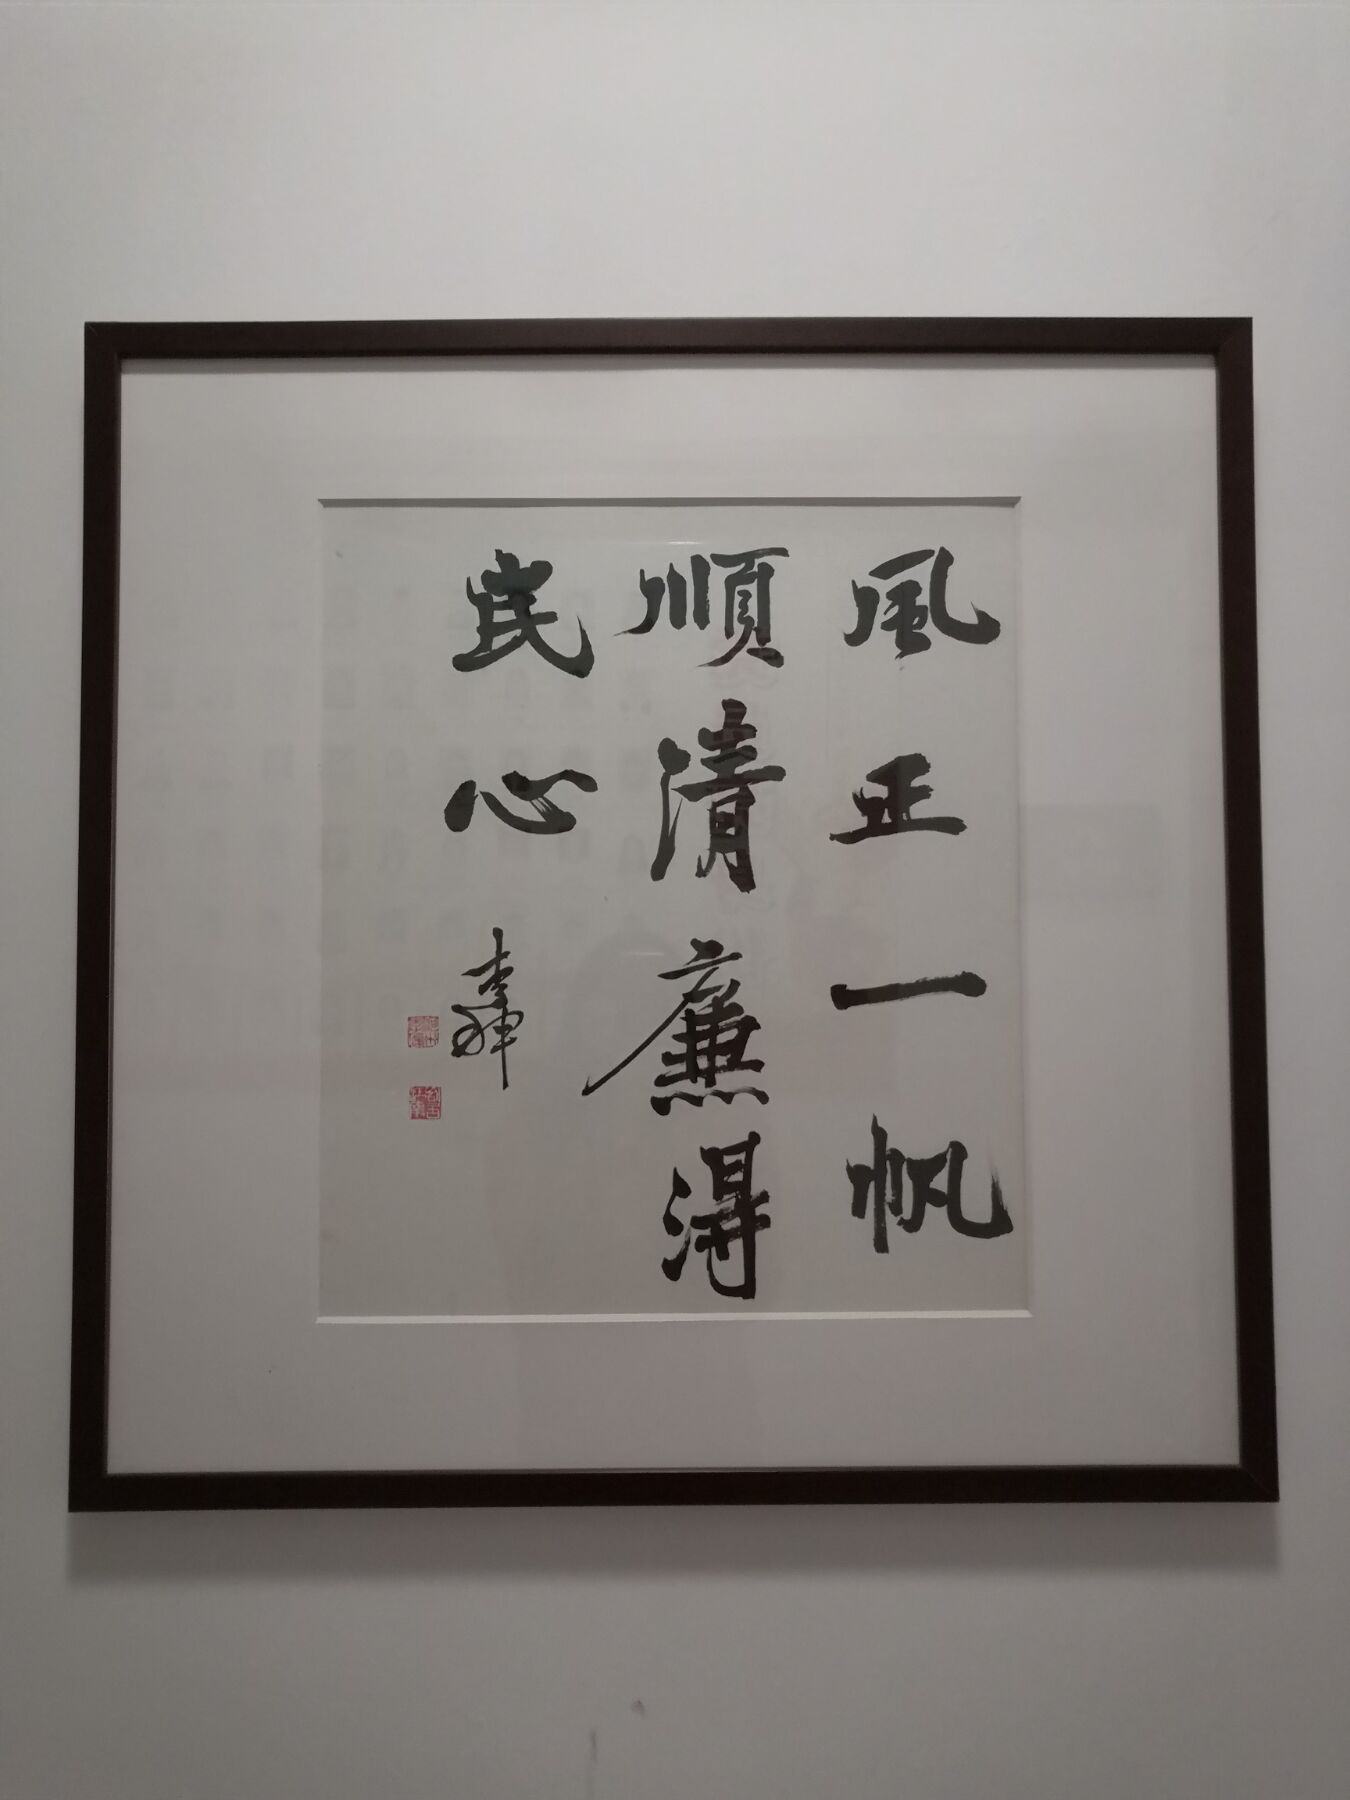 風正一帆
順清廉得
民心